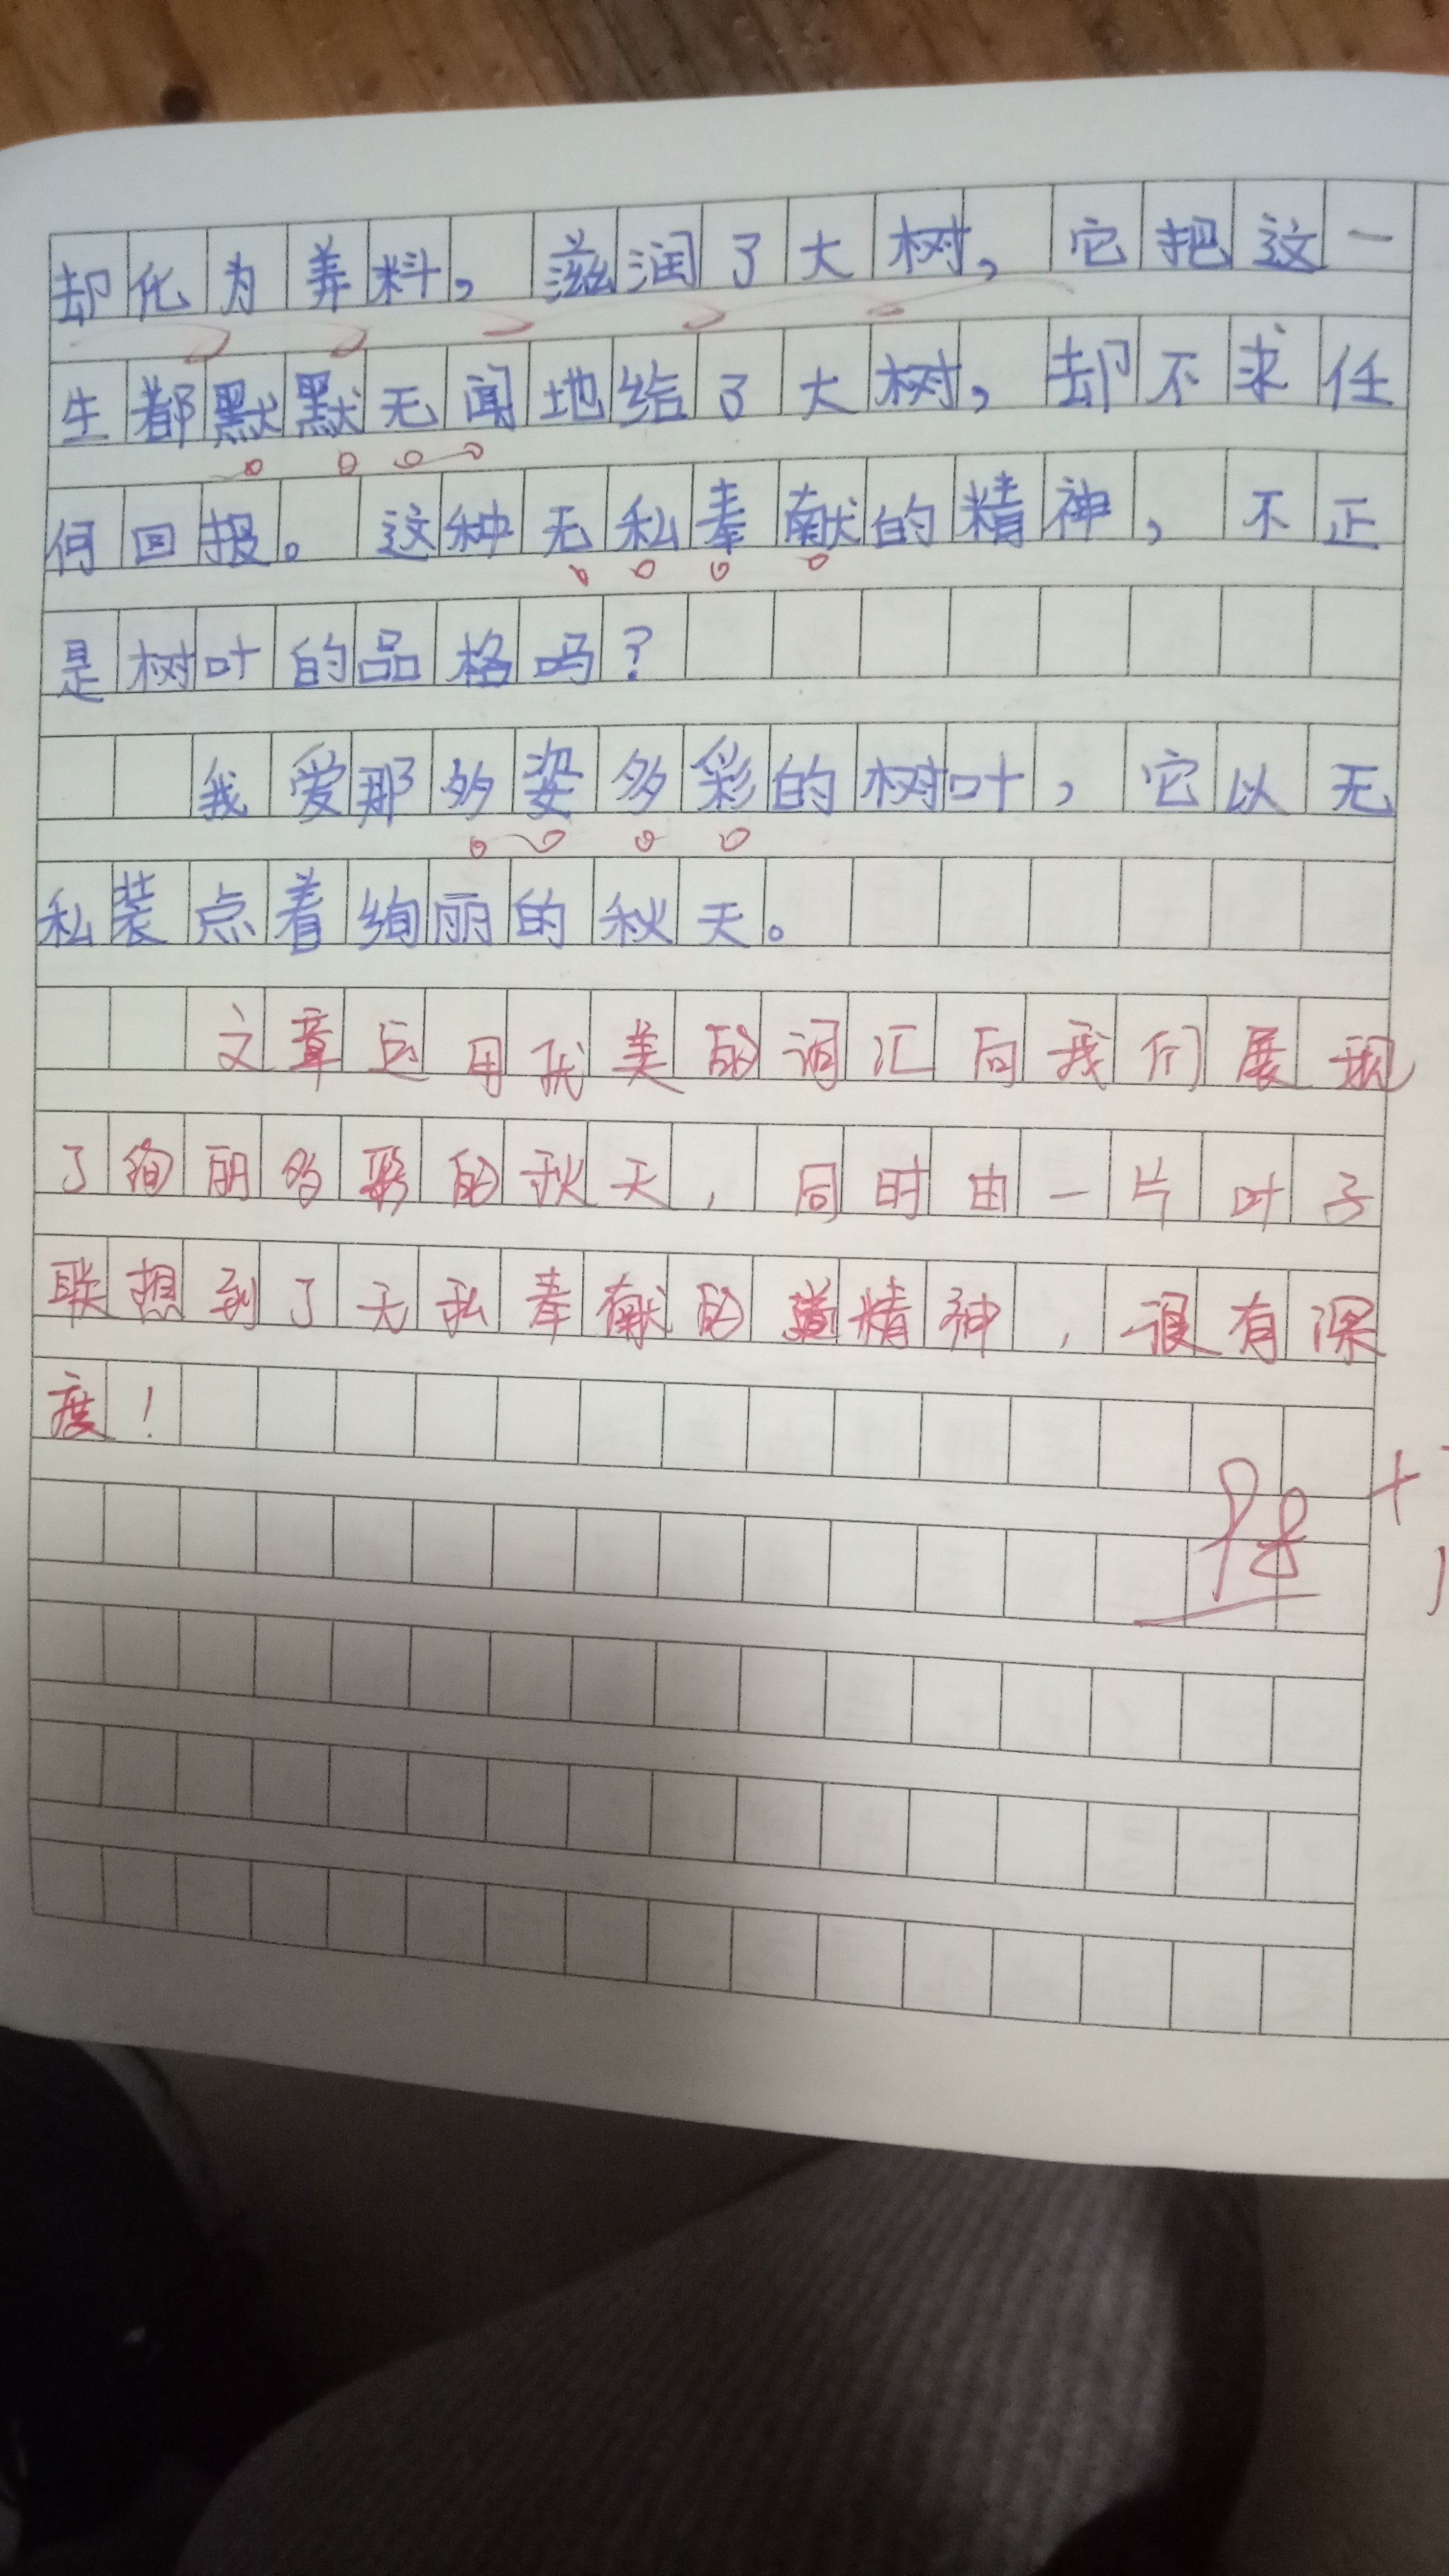 却化为养料，滋润了大树，它把这一
生都默默无闻地给了大树，却不求任
何回报。这种无私奉献的精神，不正
是树叶的品格吗？
我爱那多姿多彩的树叶，它以无
私装点着绚丽的秋天。
文章运用优美的词汇向我们展现
了绚丽多彩的秋天，同时由一片叶子
联想到了无私奉献的精神，很有深
度！